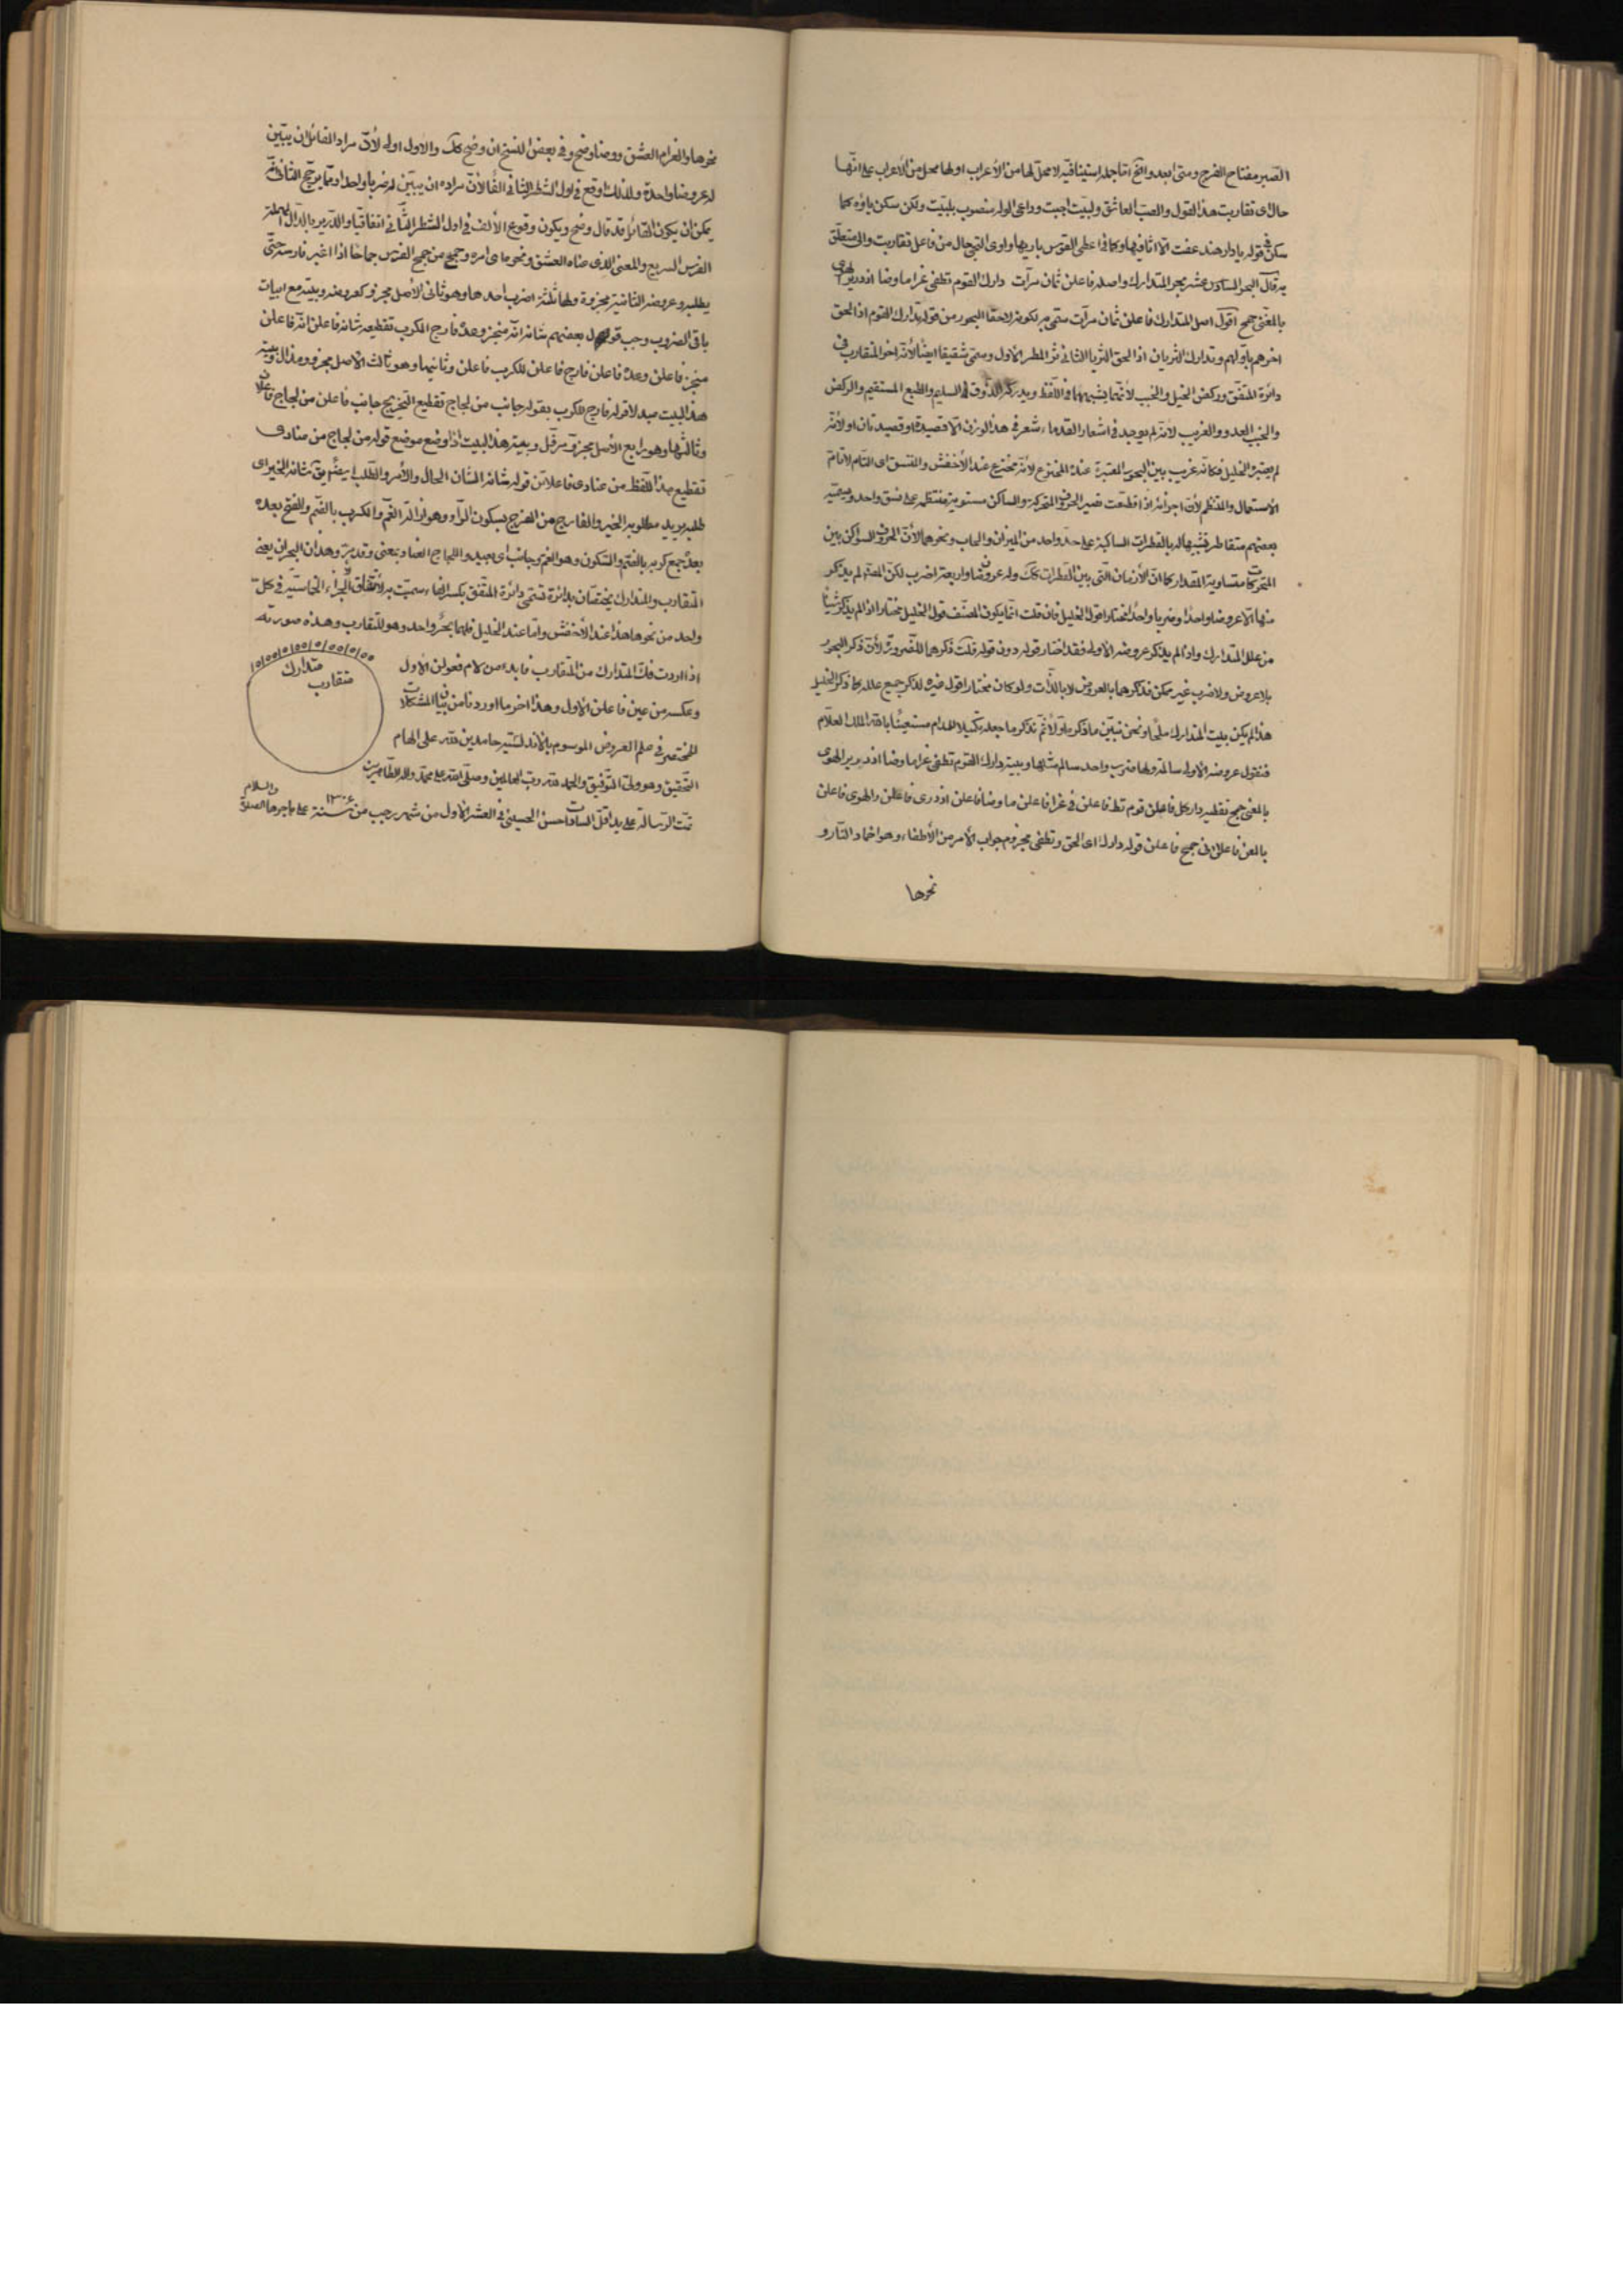 الصبر مفتاح الفرج ومتى ابعد وافتح اما جملة استينافية لا محل لها من الأعراب او لها محل من الأعراب على انها
حال اى تقاربت هذا القول والصب العاشق ولبيت اجبت وداعى الوله منصوب بلبيت ولكن سكن ياؤه كما
سكن فى قوله يا دار هند عفت الا اثافيها وكما فى اعطى القوس باريها واوى التى حال من فاعل تقاربت والى متعلق
به قال البحر السادس عشر بحر المتدارك واصله فاعلن ثمان مرات دارك القوم تطفى غراما وضا اذ دريرالهوى
بالمغنى جمح اقول اصل المتدارك فاعلن ثمان مرات سمى به لكونه لاحقا البحور من قوله تدارك القوم اذا لحق
اخرهم باولهم وتدارك الثريان اذا لحق الثريا الثانى ثر المطر الاول وسمى شقيقا ايضا لأنه اخو المتقارب فى
دائرة المتفق وركض الخيل والخبب لأنهما يشبههما فى اللفظ ويدركه الذوق السليم والطبع المستقيم والركض
والخبب العدو والغريب لأنه لم يوجد فى اشعار القدماء شعر فى هذا الوزن الا قصيدة او قصيدتان او لأنه
لم يعتبره الخليل فكانه غريب بين البحور المعتبرة عنده المخترع لأنه مخترع عند الأخفش والمتسق اى التام لأنه تام
الأستعمال والمنتظم لأن اجزائه اذا قطعت تصير الحروف المتحركة والساكن مستوية منتظم على نسق واحد وسميه
بعضهم متقاطر فشبهها له بالقطرات الساكبة على حد واحد من الميزان والسحاب ونحوهما لأن الحروف السواكن بين
المتحركات متساوية المقدار كما ان الأزمان التى بين القطرات كك وله عروضا واربعة اضرب لكن المصنف لم يذكر
منها الا عروضا واحدا وضربا واحدا مختارا قول الخليل فان قلت انما يكون المصنف قول الخليل مختارا اذا لم يذكر شيئا
من علل المتدارك واذا لم يذكر عروضه الاولى فقد اختار قوله دون قوله قلت ذكرهما للضرورة لأن ذكر البحور
بلا عروض ولا ضرب غير ممكن فذكرهما بالعروض لا بالذات ولو كان مختارا قول غيره لذكر جميع علله كما ذكر الخليل
هذا لم يكن بيت المتدارك ونحن نبين ما ذكره اولا ثم نذكر ما بعد تكميلا للمرام مستعينا بالله الملك العلام
فنقول عروضه الاولى سالمة ولها ضرب واحد سالم مثلها وبيته دارك القوم تطفى غراما وضا اذ درير الهوى
بالمغنى جمح تقطيعه دارك ل فاعلن قوم تط فاعلن فى غرا فاعلن ما وضا فاعلن اذ درى فاعلن رالهوى فاعلن
بالمعن فاعلن نى جمح فاعلن قوله دارك اى الحق وتطفى مجزوم جواب الأمر من الأطفاء وهو اخماد النار و
نحوها
نحوها والغرام العشق ووضا وضح وفى بعض النسخ ان وضح كك والأول اولى لأن مراد القائل ان يبين
له عروضا واحدة ولذلك اوقع فى اول الشطر الثانى الفا لأن مراده ان يبين له ضربا واحدا ومما يرجح الثانى انه
يمكن ان يكون القائل قد قال وضح ويكون وقوع الألف فى اول الشطر الثانى اتفاقيا والدرير بالدال المهملة
الفرس السريع والمعنى الذى ضناه العشق ونحوها اى امره وجمح من جمح الفرس جماحا اذا اغبر فارسه حتى
يطلبه وعروضه الثانية مجزوة ولها ثلثة اضرب احدها وهو ثانى الأصل مجزو كعروضه وبيته مع ابيات
باقى الضروب وجب قول بعضهم شانه انه منجز وعده فارج الكرب تقطيعه شانه فاعلن انه فاعلن
منجز فاعلن وعده فاعلن فارج فاعلن للكرب فاعلن وثانيهما وهو ثالث الاصل مجزو ومذال وبيته
هذا البيت مبدلا قوله فارج للكرب بقوله جانب من لجاج تقطيع التخريج جانب فاعلن من لجاج فاعلان
وثالثها وهو رابع الأصل مجزو مرفل وبيته هذا البيت اذا وضع موضع قوله من لجاج من عنادى
تقطيع هذا اللفظ من عنادى فاعلاتن قوله شانه الشان الحال والأمر والطلب ايضا يق شانه الخير اى
طلبه يريد مطلوبه الخير والفارج من الفرج بسكون الراء وهو ازالة الغم والكرب بالضم والفتح بعده
بعد جمع كربة بالضم والسكون وهو الغم وجانب اى بعيد واللجاج العناد بمعنى وقد مر وهذان البحران يعنى
المتقارب والمتدارك يختصان بدائرة تسمى دائرة المتفق بكسر الفاء سميت به لأتفاق اجزاء الخماسية فى كل
واحد من نحوها هذا عند الأخفش واما عند الخليل فلها بحر واحد وهو المتقارب وهذه صورته
اذا اردت فك المتدارك من المتقارب فابدء من لام فعولن الأول
وعكسه من عين فاعلن الأول وهذا اخر ما اوردنا من بيان المشكلات
المختصر فى علم العروض الموسوم بالأندلسية حامدين لله على الهام
التحقيق وهو ولى التوفيق والحمد لله رب العالمين وصلى الله على محمد واله الطاهرين
تمت الرسالة على يد اقل السادات حسن الحسينى فى العشر الأول من شهر رجب من سنة ١٣٠٤ على هاجرها الصلوة والسلام
متدارك
متقارب